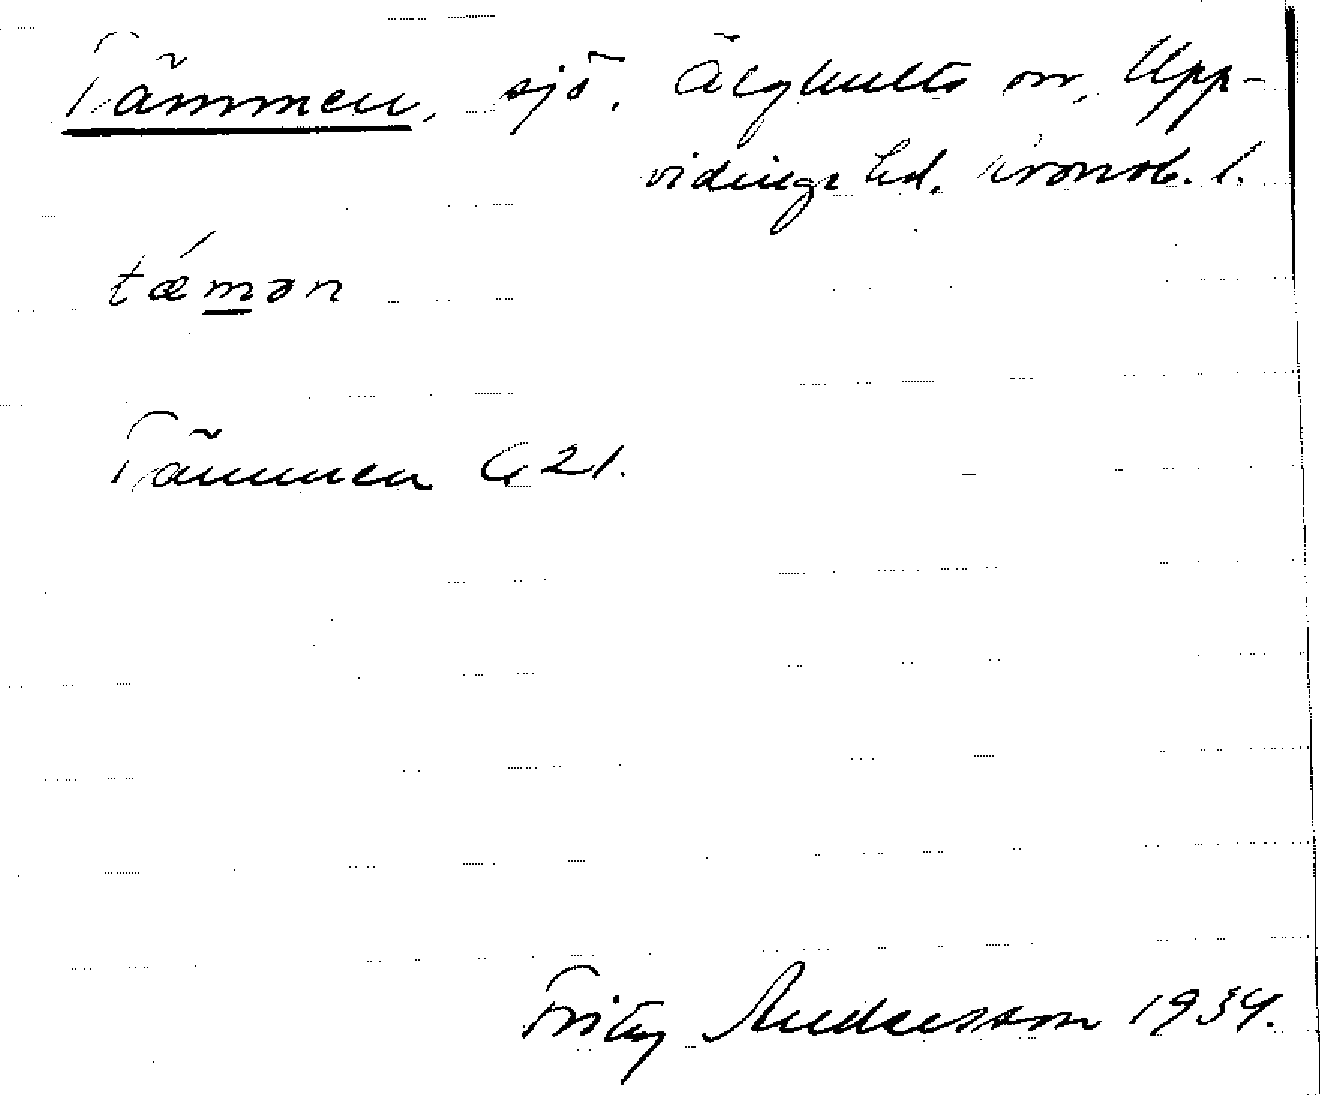 Tämmen, sjö. Älghults sn, Upp-
vidinge hd. Kronob. l.
tǽmən
Tämmen G 21.
Fritz Andersson 1934.